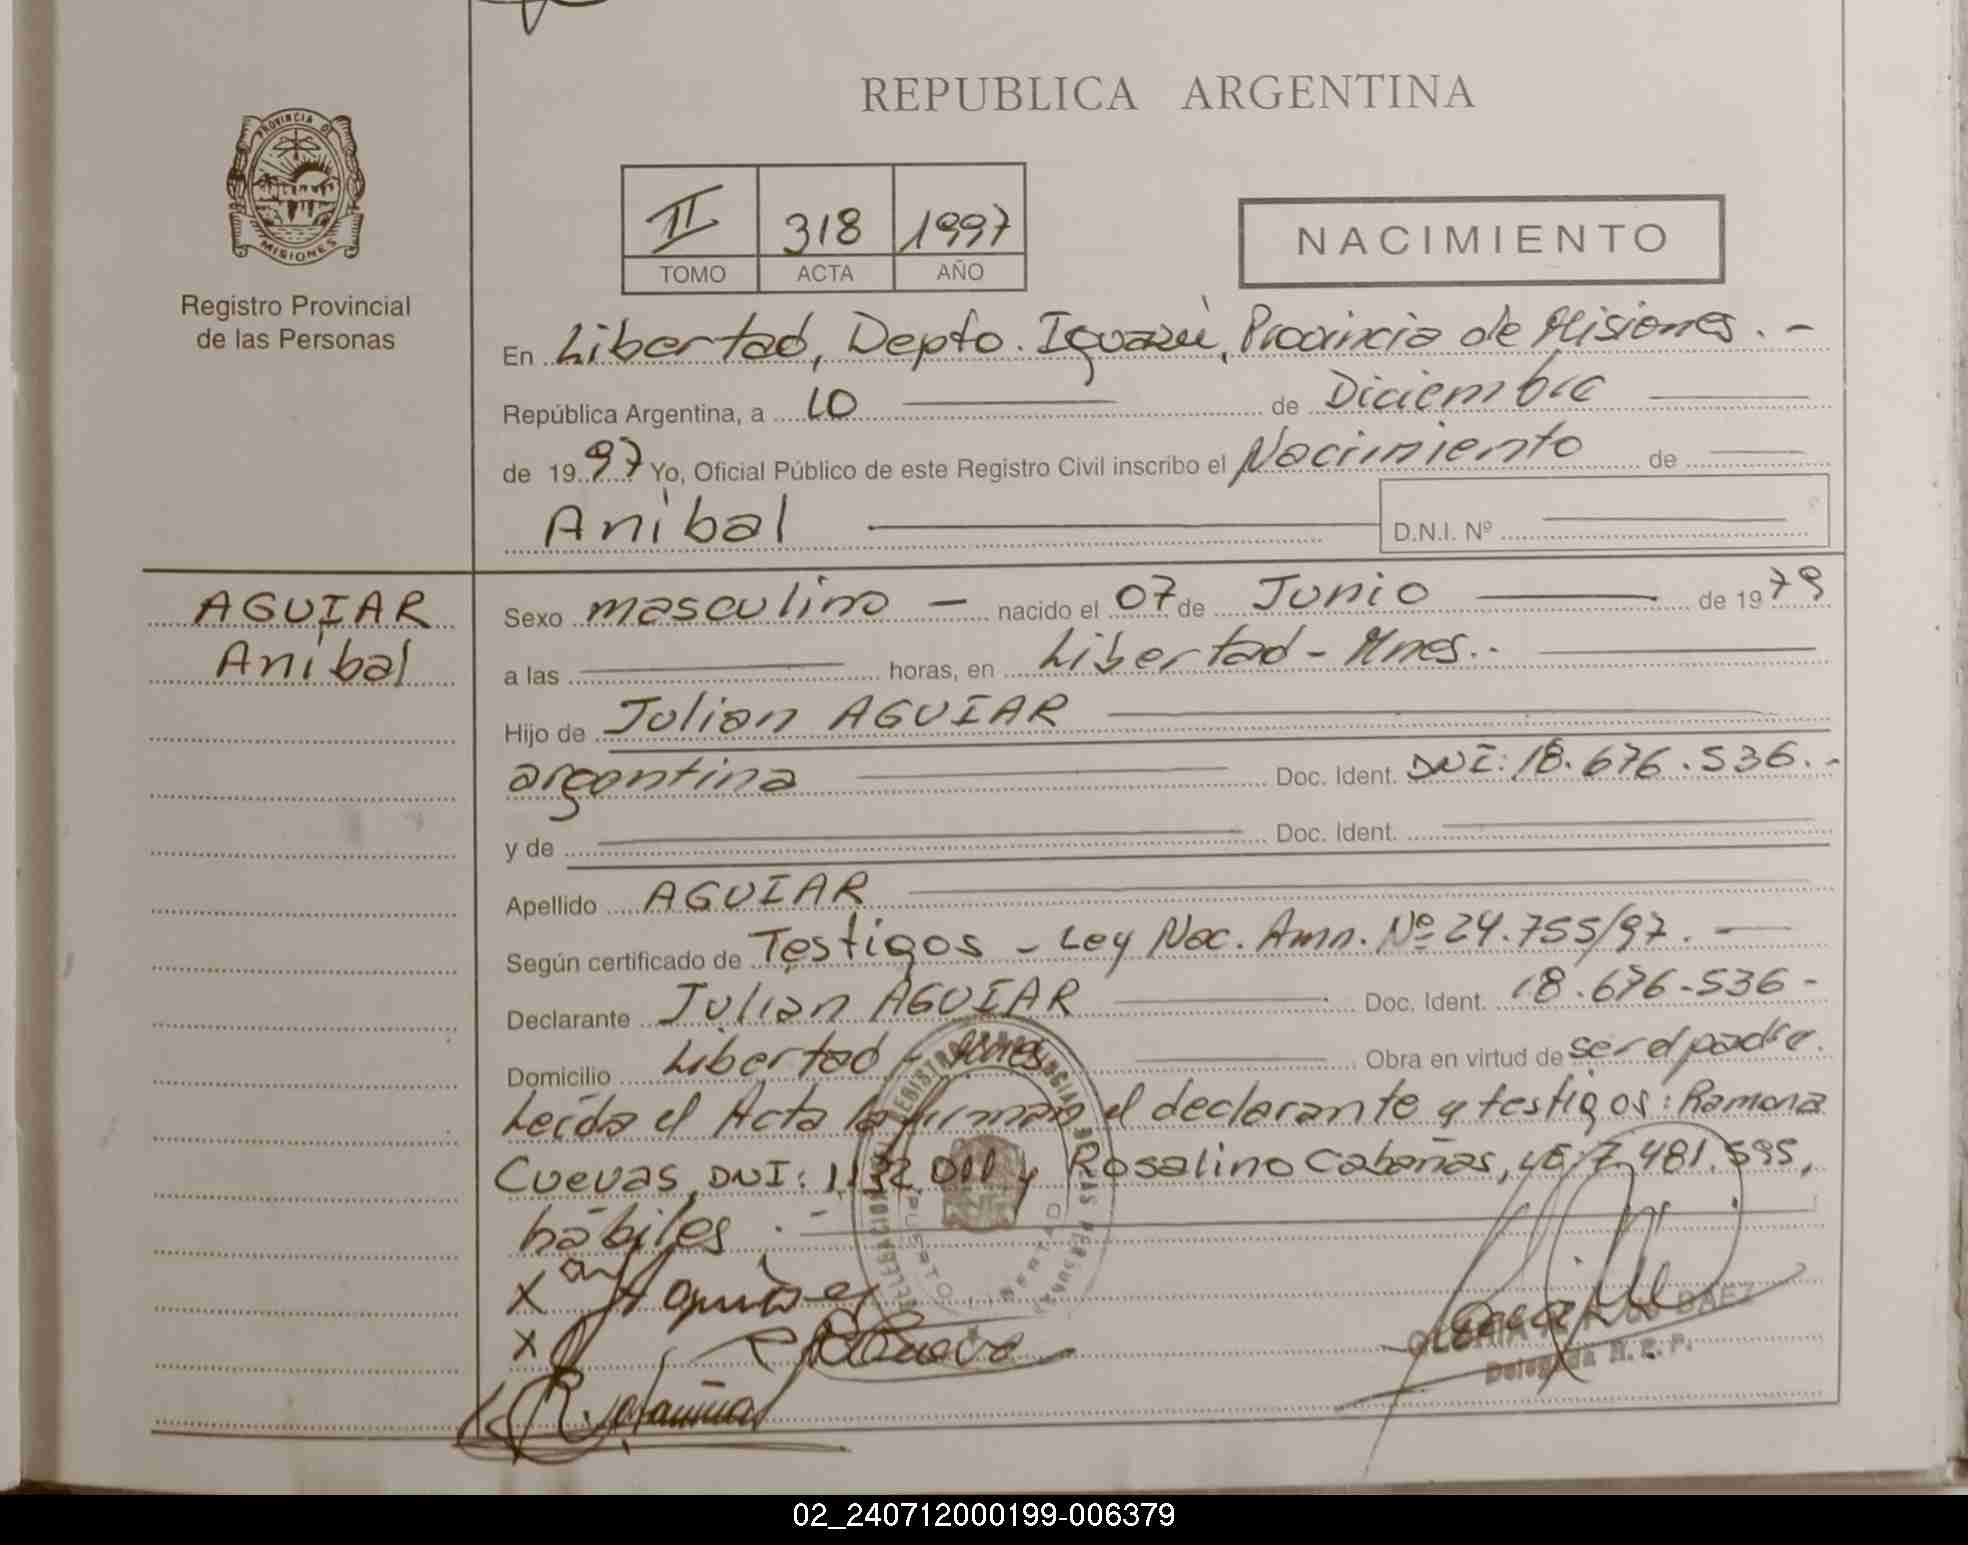 REPUBLICA ARGENTINA
PROVINCIA DE
MISIONES
Registro Provincial
de las Personas
II 318 1997
TOMO ACTA AÑO
NACIMIENTO
En Libertad, Depto. Iguazú, Provincia de Misiones. -
República Argentina, a 10 de Diciembre
de 1997 Yo, Oficial Público de este Registro Civil inscribo el Nacimiento de
Aníbal D.N.I. Nº
AGUIAR
Aníbal
Sexo masculino - nacido el 07 de Junio de 1979
a las horas, en Libertad - Mnes..
Hijo de Julian AGUIAR
argentina Doc. Ident. DNI: 18.676.536.-
y de Doc. Ident.
Apellido AGUIAR
Según certificado de Testigos - Ley Nac. Amn. Nº 24.755/97.
Declarante Julian AGUIAR Doc. Ident. 18.676.536-
Domicilio Libertad - Mnes Obra en virtud de ser el padre.
Leída el Acta la firman el declarante y testigos: Ramona
Cuevas, DNI: y Rosalino Cabañas, 7.481.595,
hábiles. -
X
X
BAEZ
Delegada R.P.P.
02_240712000199-006379